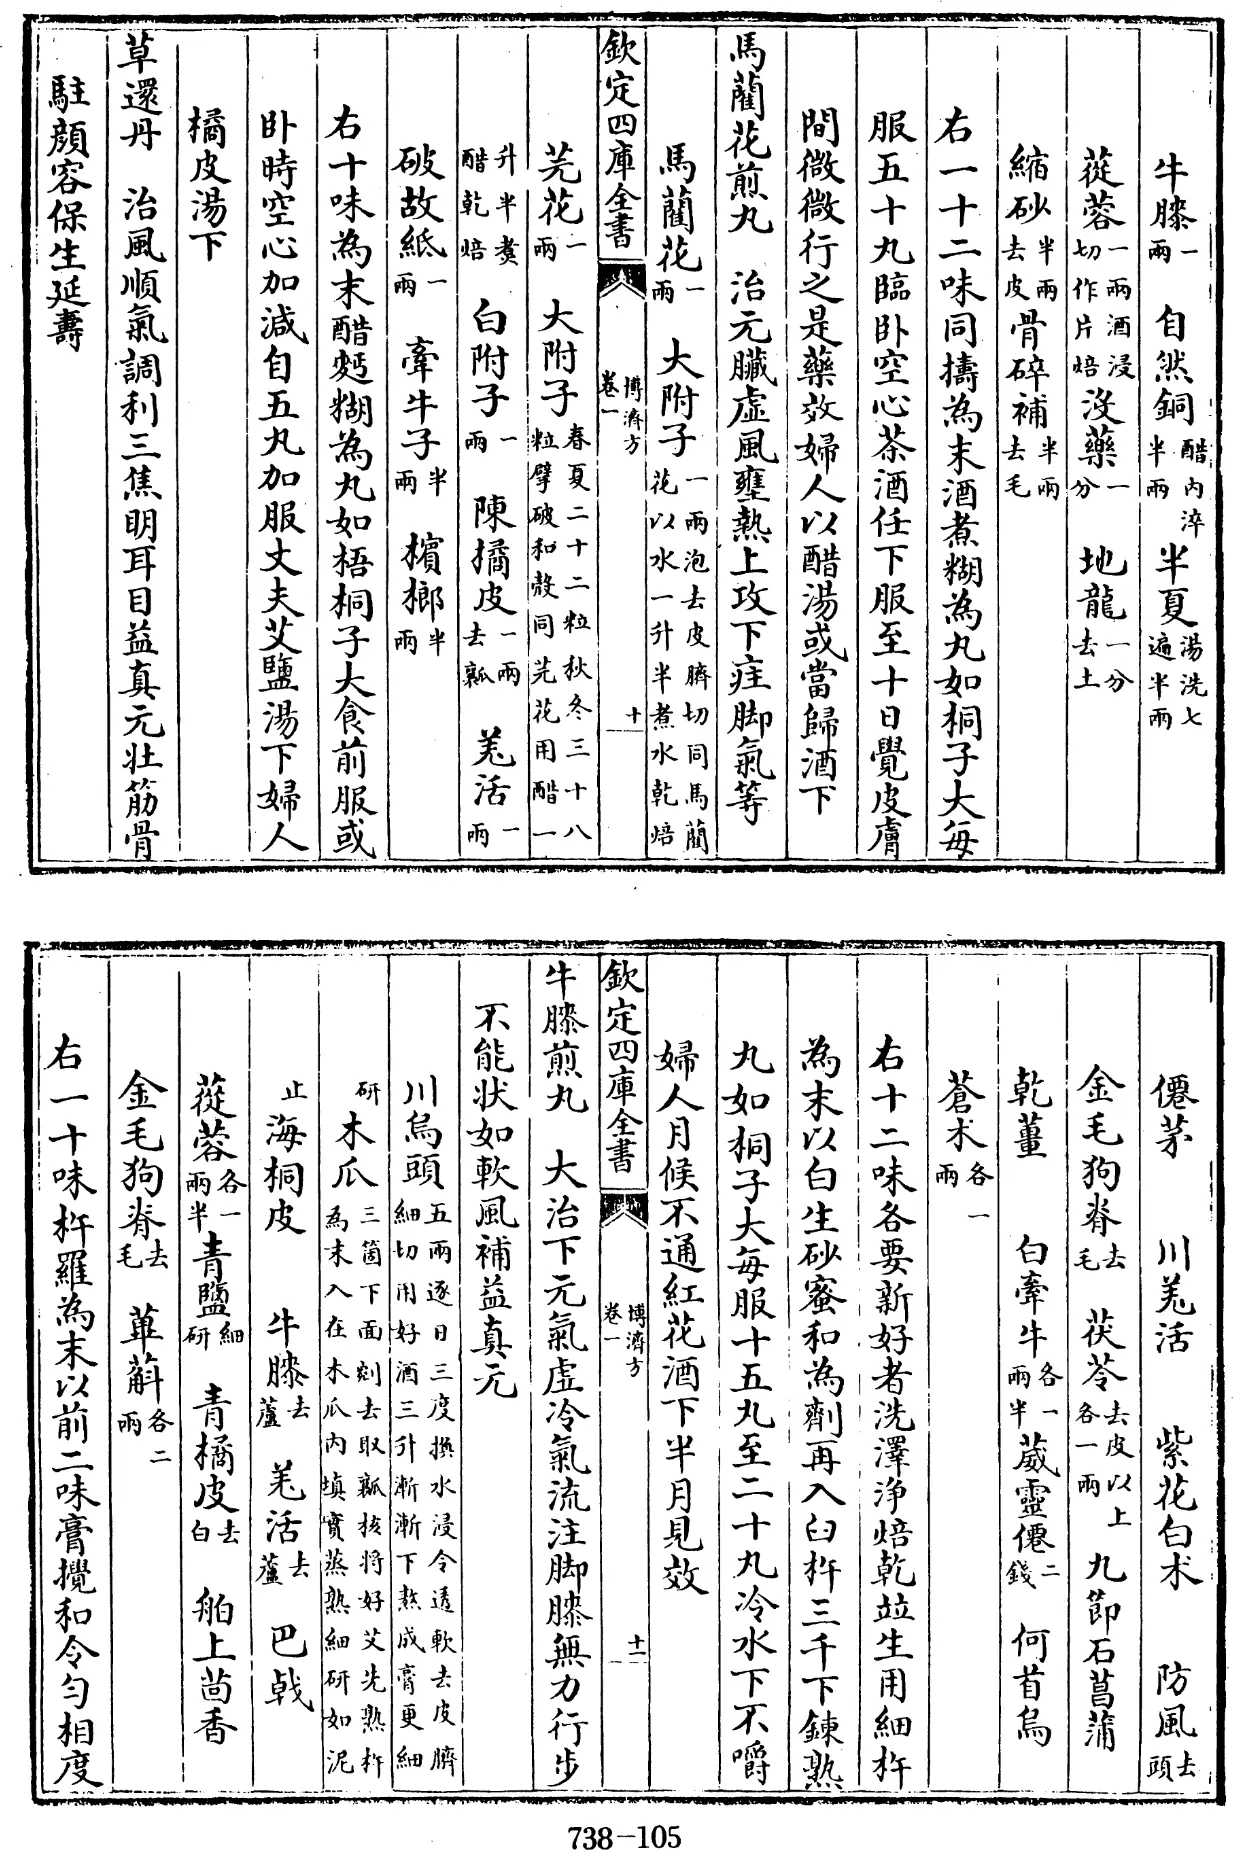 牛膝一兩 自然銅醋内淬半兩 半夏湯洗七遍半兩
蓯蓉一兩酒浸切作片焙 没藥一分 地龍一分去土
縮砂半兩去皮 骨碎補半兩去毛
右一十二味同擣為末酒煮糊為丸如桐子大每
服五十丸臨卧空心茶酒任下服至十日覺皮膚
間微微行之是藥效婦人以醋湯或當歸酒下
馬藺花煎丸 治元臟虚風壅熱上攻下疰脚氣等
馬藺花一兩 大附子一兩泡去皮臍切同馬藺花以水一升半煮水乾焙
欽定四庫全書 博濟方卷一 十
芫花一兩 大附子春夏二十二粒秋冬三十八粒擘破和殼同芫花用醋一
升半煑醋乾焙 白附子一兩 陳橘皮一兩去瓤 羌活一兩
破故紙一兩 牽牛子半兩 檳榔半兩
右十味為末醋麫糊為丸如梧桐子大食前服或
卧時空心加減自五丸加服丈夫艾鹽湯下婦人
橘皮湯下
草還丹 治風順氣調利三焦明耳目益真元壯筋骨
駐顔容保生延壽
僊茅 川羌活 紫花白术 防風去頭
金毛狗脊去毛 茯苓去皮以上各一兩 九節石菖蒲
乾薑 白牽牛各一兩半 葳靈僊二錢 何首烏
蒼术各一兩
右十二味各要新好者洗澤浄焙乾竝生用細杵
為末以白生砂蜜和為劑再入臼杵三千下鍊熟
丸如桐子大每服十五丸至二十丸冷水下不嚼
婦人月候不通紅花酒下半月見效
欽定四庫全書 博濟方卷一 十一
牛膝煎丸 大治下元氣虚冷氣流注脚膝無力行步
不能状如軟風補益真元
川烏頭五兩逐日三度換水浸令透軟去皮臍細切用好酒三升漸漸下熬成膏更細
研 木瓜三箇下面剜去取瓤核将好艾先熟杵為末入在木瓜内填實蒸熟細研如泥
止 海桐皮 牛膝去蘆 羌活去蘆 巴戟
蓯蓉各一兩半 青鹽細研 青橘皮去白 舶上茴香
金毛狗脊去毛 萆薢各二兩
右一十味杵羅為末以前二味膏攪和令勻相度
738-105